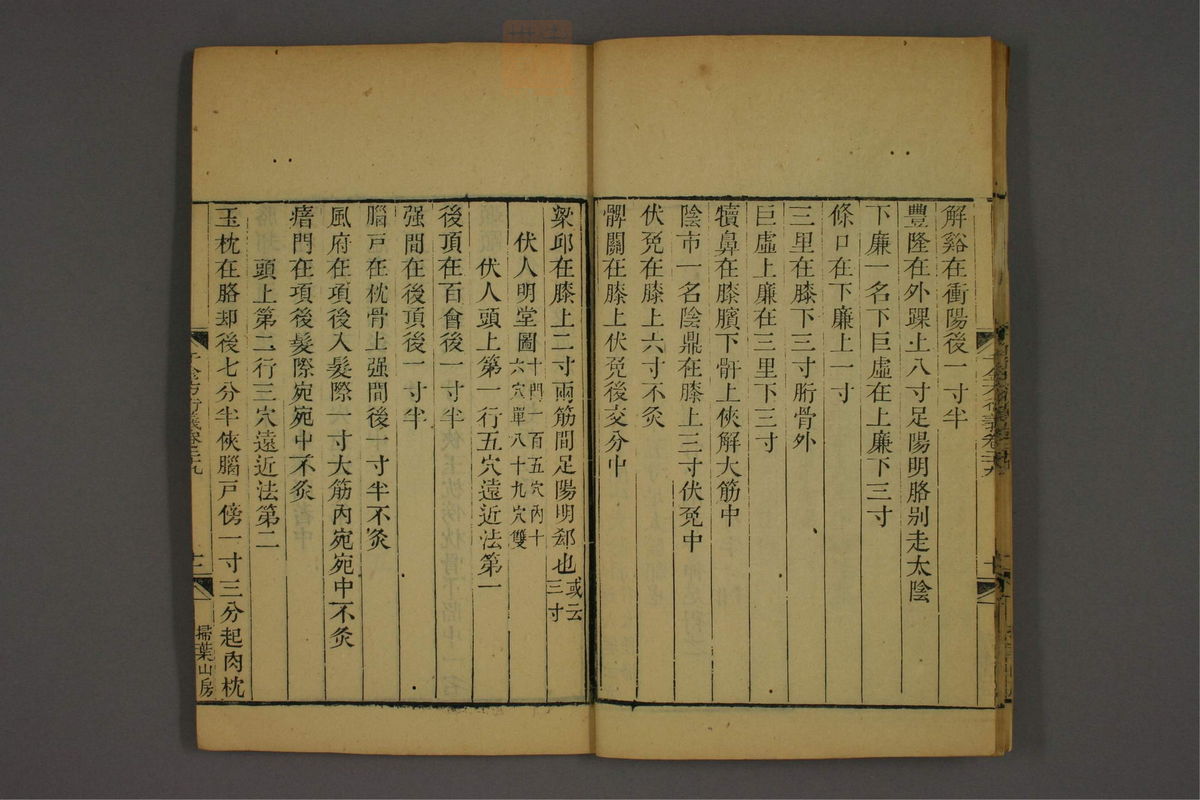 解谿在衝陽後一寸半
豐隆在外踝上八寸足陽明胳别走太陰
下廉一名下巨虛在上廉下三寸
條口在下廉上一寸
三里在膝下三寸胻骨外
巨虛上廉在三里下三寸
犢鼻在膝臏下骭上俠解大筋中
陰市一名陰鼎在膝上三寸伏兔中
伏兔在膝上六寸不灸
髀關在膝上伏兔後交分中
梁邱在膝上二寸兩筋間足陽明郄也或云三寸
伏人明堂圖十門一百五穴內十六穴單八十九穴雙
伏人頭上第一行五穴遠近法第一
後頂在百會後一寸半
强間在後頂後一寸半
腦戸在枕骨上强間後一寸半不灸
風府在項後入髮際一寸大筋內宛宛中不灸
瘖門在項後髮際宛宛中不灸
頭上第二行三穴遠近法第二
玉枕在胳却後七分半俠腦戸傍一寸三分起肉枕
千金方衍義卷二十九
掃葉山房